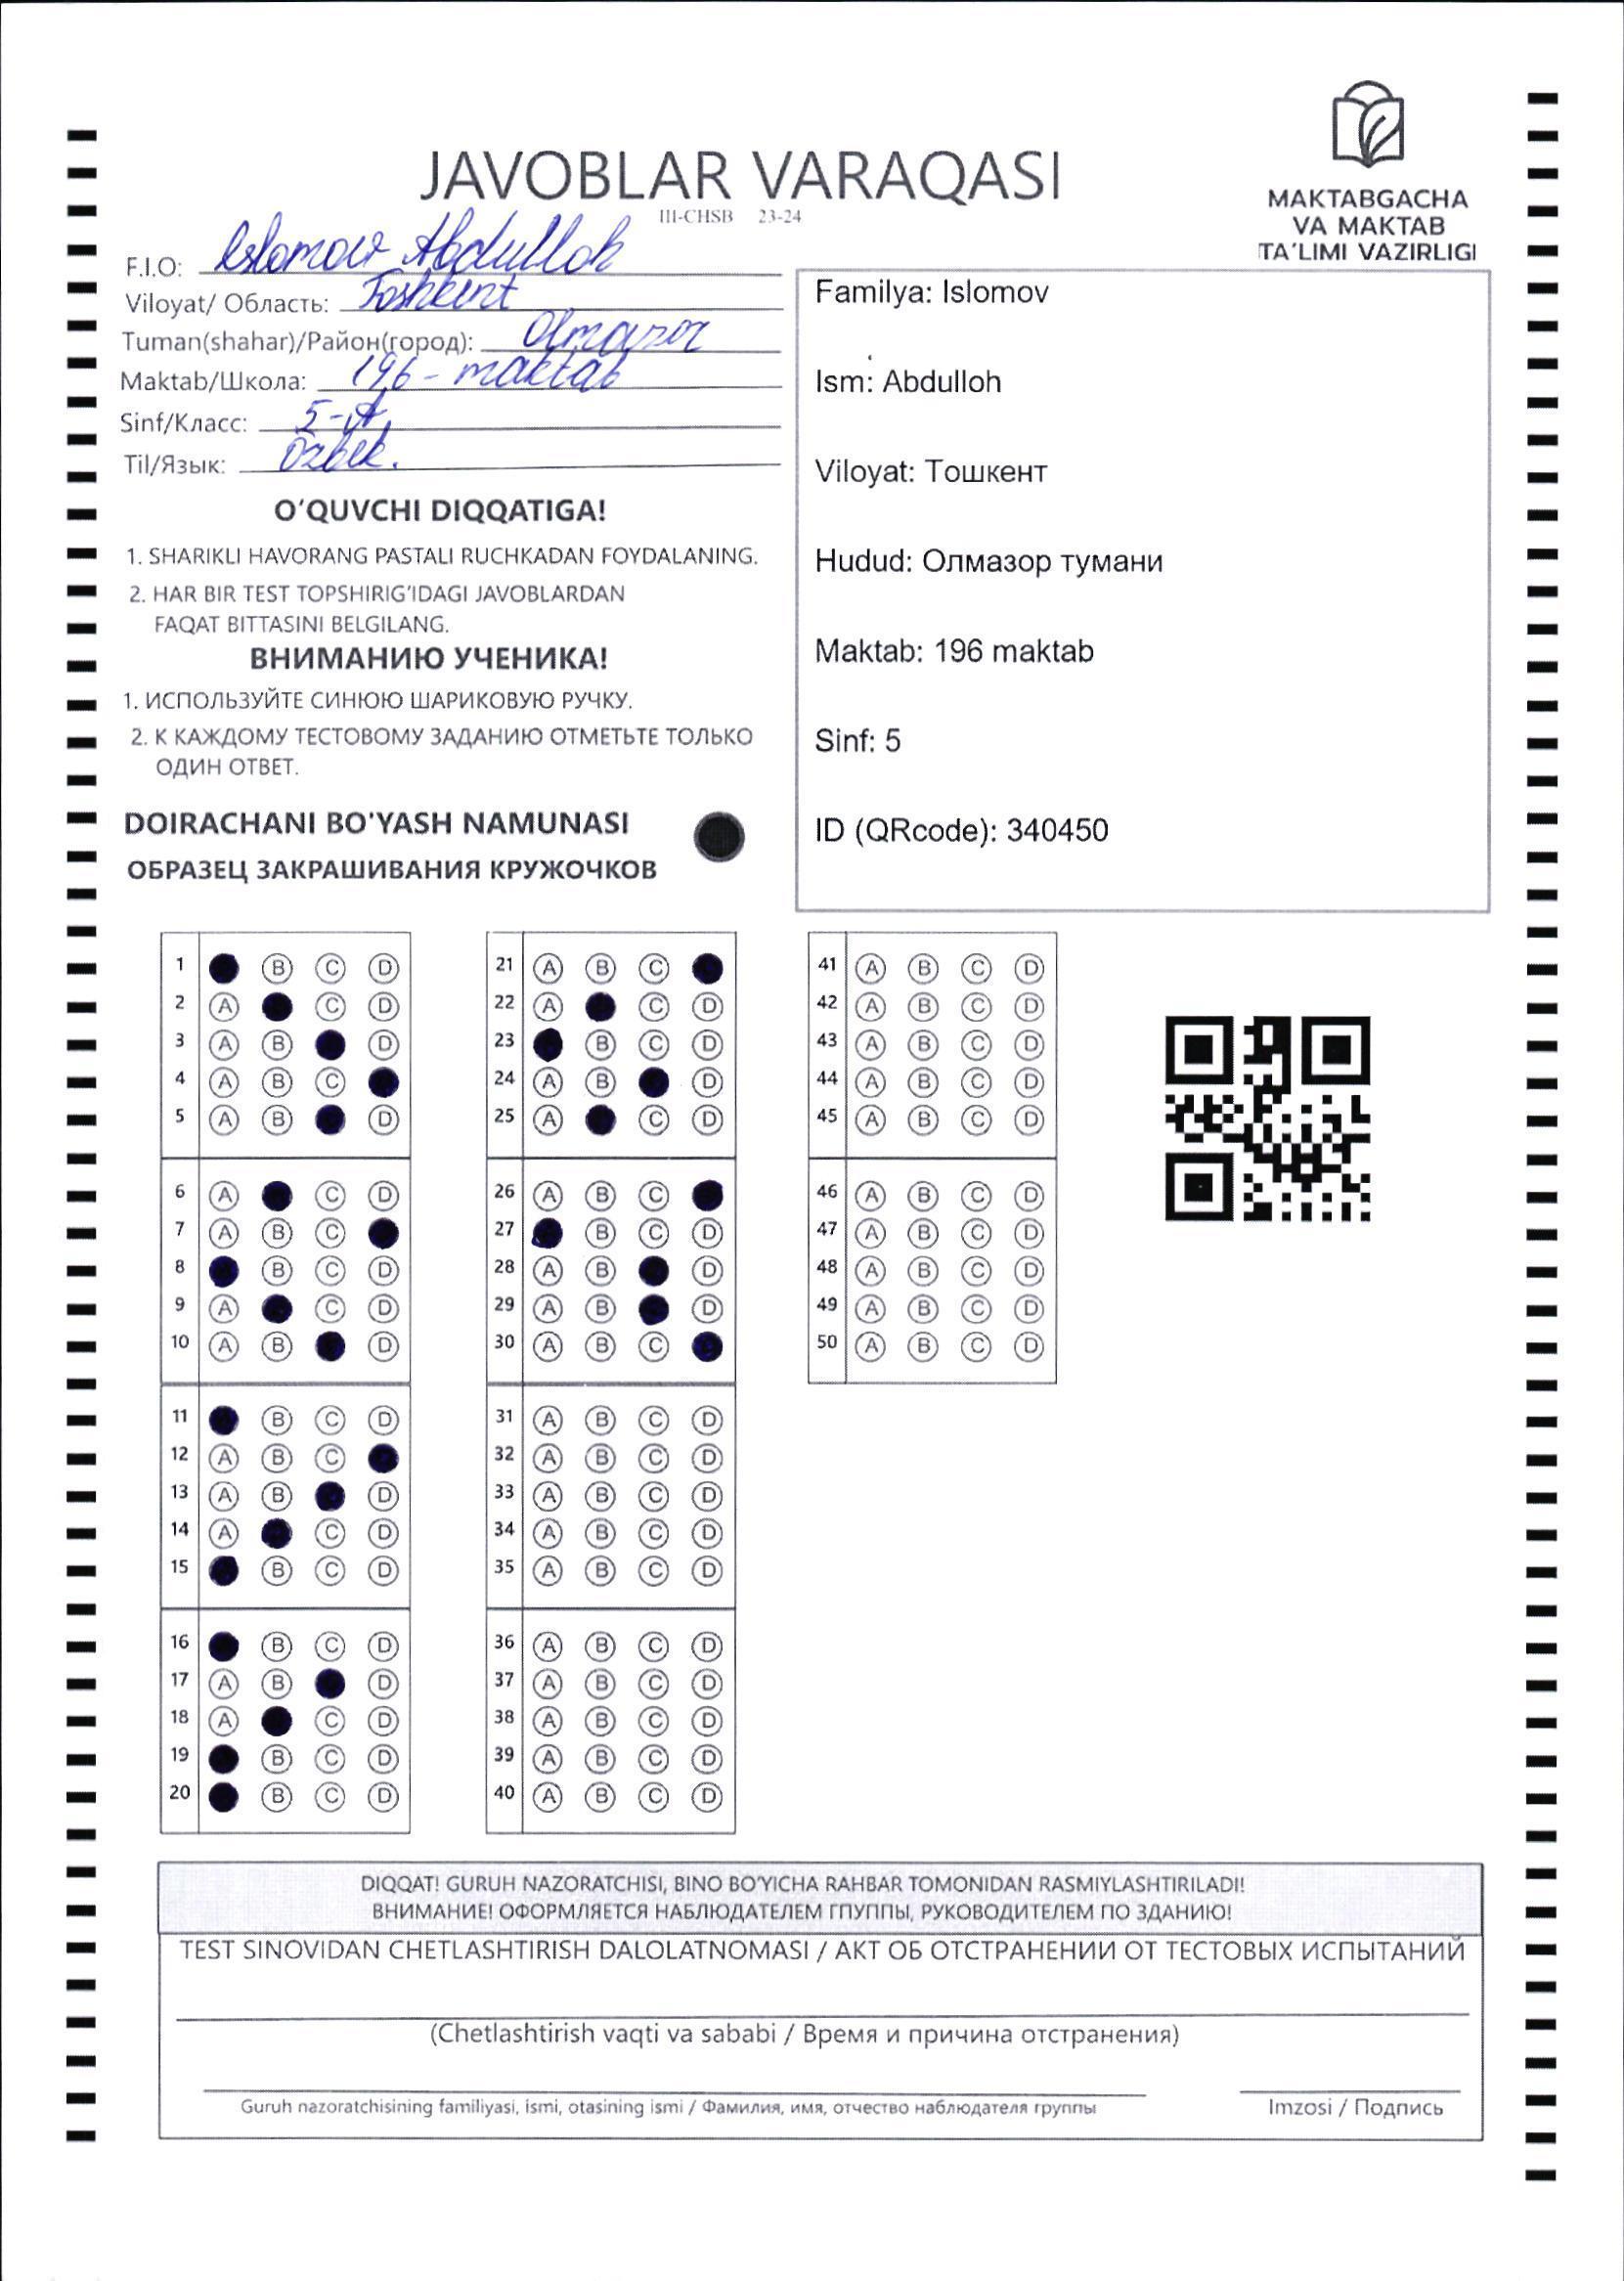 JAVOBLAR VARAQASI
III-CHSB 23-24
MAKTABGACHA
VA MAKTAB
TA'LIMI VAZIRLIGI
F.I.O: Islomov Abdulloh
Viloyat/ Область: Toshkent
Tuman(shahar)/Район(город): Olmazor
Maktab/Школа: 196 - maktab
Sinf/Класс: 5-A
Til/Язык: Özbek.
O'QUVCHI DIQQATIGA!
1. SHARIKLI HAVORANG PASTALI RUCHKADAN FOYDALANING.
2. HAR BIR TEST TOPSHIRIG'IDAGI JAVOBLARDAN
FAQAT BITTASINI BELGILANG.
ВНИМАНИЮ УЧЕНИКА!
1. ИСПОЛЬЗУЙТЕ СИНЮЮ ШАРИКОВУЮ РУЧКУ.
2. К КАЖДОМУ ТЕСТОВОМУ ЗАДАНИЮ ОТМЕТЬТЕ ТОЛЬКО
ОДИН ОТВЕТ.
DOIRACHANI BO'YASH NAMUNASI
ОБРАЗЕЦ ЗАКРАШИВАНИЯ КРУЖОЧКОВ
Familya: Islomov
Ism: Abdulloh
Viloyat: Тошкент
Hudud: Олмазор тумани
Maktab: 196 maktab
Sinf: 5
ID (QRcode): 340450
1 B C D
2 A C D
3 A B D
4 A B C
5 A B D
6 A C D
7 A B C
8 B C D
9 A C D
10 A B D
11 B C D
12 A B C
13 A B D
14 A C D
15 B C D
16 B C D
17 A B D
18 A C D
19 B C D
20 B C D
21 A B C
22 A C D
23 B C D
24 A B D
25 A C D
26 A B C
27 B C D
28 A B D
29 A B D
30 A B C
31 A B C D
32 A B C D
33 A B C D
34 A B C D
35 A B C D
36 A B C D
37 A B C D
38 A B C D
39 A B C D
40 A B C D
41 A B C D
42 A B C D
43 A B C D
44 A B C D
45 A B C D
46 A B C D
47 A B C D
48 A B C D
49 A B C D
50 A B C D
DIQQAT! GURUH NAZORATCHISI, BINO BO'YICHA RAHBAR TOMONIDAN RASMIYLASHTIRILADI!
ВНИМАНИЕ! ОФОРМЛЯЕТСЯ НАБЛЮДАТЕЛЕМ ГПУППЫ, РУКОВОДИТЕЛЕМ ПО ЗДАНИЮ!
TEST SINOVIDAN CHETLASHTIRISH DALOLATNOMASI / АКТ ОБ ОТСТРАНЕНИИ ОТ ТЕСТОВЫХ ИСПЫТАНИЙ
(Chetlashtirish vaqti va sababi / Время и причина отстранения)
Guruh nazoratchisining familiyasi, ismi, otasining ismi / Фамилия, имя, отчество наблюдателя группы
Imzosi / Подпись